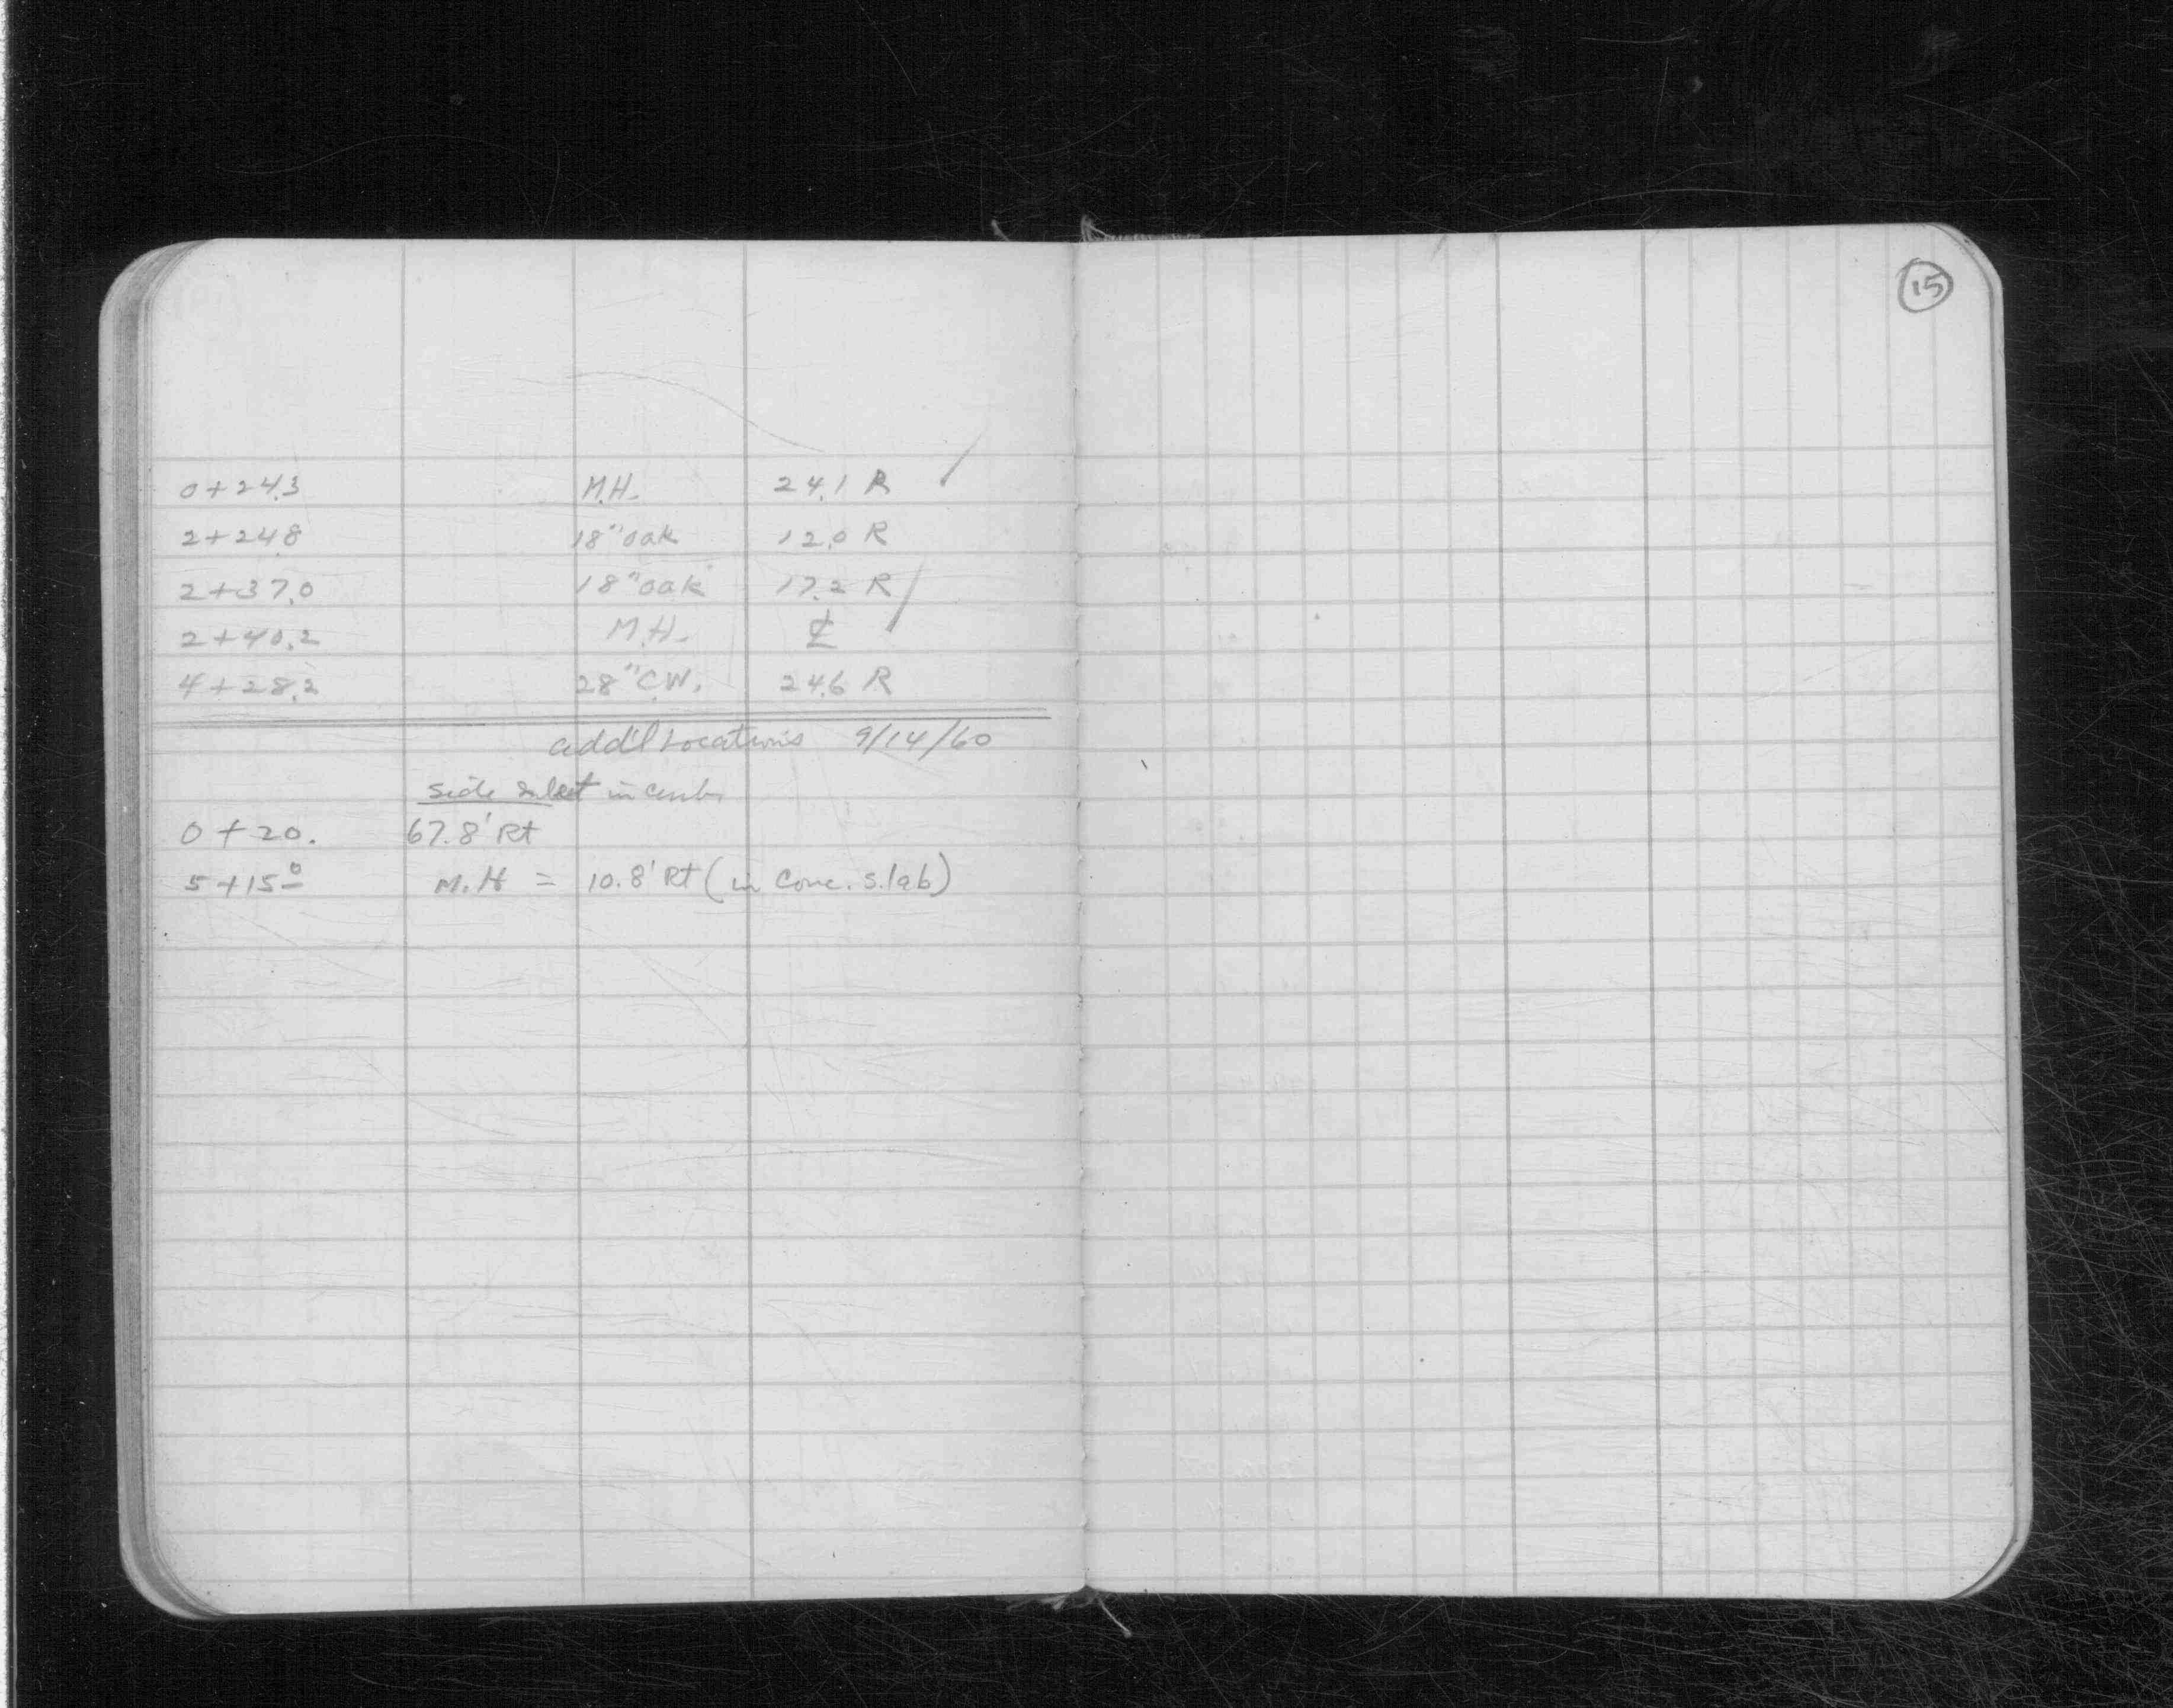 15
0+24.3 M.H. 24.1 R
2+24.8 18" oak 12.0 R
2+37.0 18" oak 17.2 R
2+40.2 M.H. ℄
4+28.2 28" C.W. 24.6 R
add'l Locations 9/14/60
side Inlet in curb
0+20. 67.8' Rt
5+15⁰ M.H = 10.8' Rt (in conc. slab)